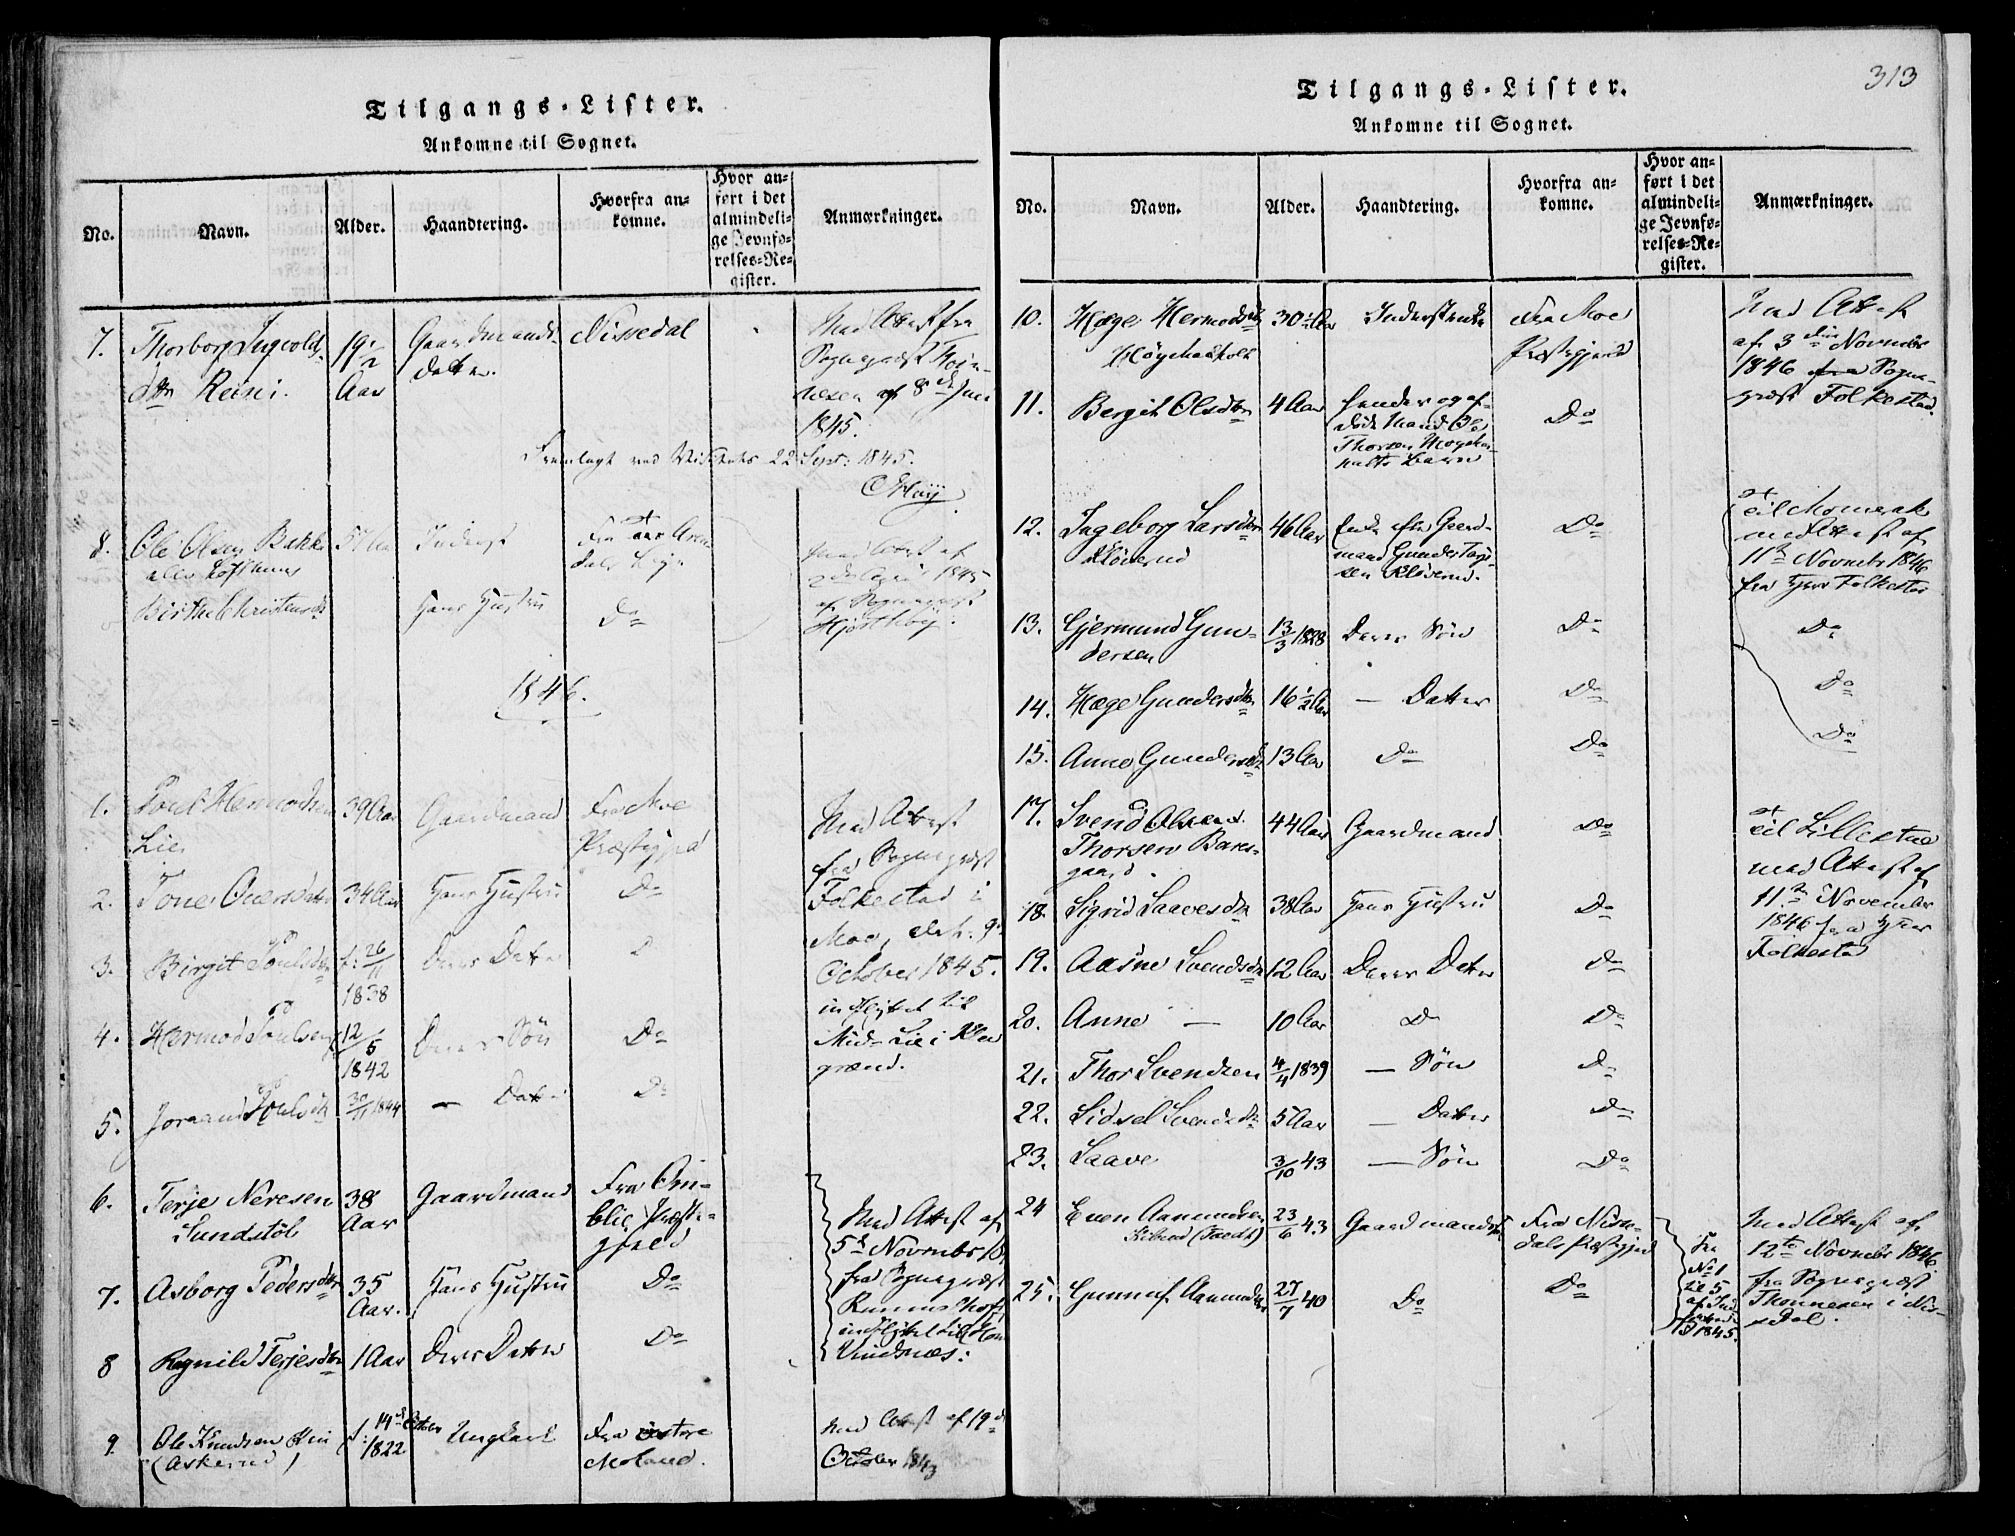 Tilgangs-Lister.
Ankomne til Sognet.
No.
Navn.
Alder.
Haandtering.
Hvorfra an-
komne.
Hvor an-
ført i det
almindeli-
ge Jevnfø-
relses-Re-
gister.
Anmærkninger.
7.
Thorborg Ingvolds-
dtr Reini.
19½
Aar
Gaardmands-
datter.
Nissedal
Med Attest fra
Sognepræst
af 8de Juni
1845.
Fremlagt ved Visitats 22 Sept: 1845.
8.
Ole Olsen Bakke
Birthe Christensdtr
57 Aar
Inderst
Hans Hustru
Fra
Do
Med Attest af
1845
af Sognepræst
1846.
1.
Poul Hermodsen
Lie
39 Aar
Gaardmand
Fra Moe
Præstegjeld
Med Attest
fra Sognepræst
Folkestad i
Moe, dat. 9de
October 1845.
indflyttet til
Mid-Lie i
grænd.
2.
Tone Olversdatter
34 Aar
Hans Hustru
Do
3.
Birgit Poulsdtr
f: 26/11
1838
Deres Datter
Do
4.
Hermod Poulsen
12/5
1842
Deres Søn
Do
5.
Joraand Poulsdtr
30/11 1844
— Datter
Do
6.
Terje Neresen
Sundstöl
38
Aar
Gaardmand
Fra Om-
blie Præste-
gjeld
Med Attest af
5te Novembr
fra Sognepræst
indflyttet til
Vindsnæs:
7.
Asborg Pedersdtr
35
Aar.
Hans Hustru
Do
8
Ragnild Terjesdtr
1 Aar
Deres Datter
Do
9
Ole Knudsen
(Askerud)
f: 14de October
1822
Ungkarl
Fra östere
Moland.
Med Attest af 19de
October 1843
313
Tilgangs-Lister.
Ankomne til Sognet.
No.
Navn.
Alder.
Haandtering.
Hvorfra an-
komne.
Hvor an-
ført i det
almindeli-
ge Jevnfø-
relses-Re-
gister.
Anmærkninger.
10.
Hæge Hermodsdtr
30½ Aar
Inderstenke
Fra Moe
Præstegjeld
Med Attest
af 3die Novembr
1846 fra Sogne-
præst Folkestad.
11.
Bergit Olsdtr
4 Aar
Hendes og af-
døde Mand Ole
Thorsen
Barn
Do
12.
Ingeborg Larsdtr
Klöverud
46 Aar
Enke efter Gaard-
mand Gunder Terje-
sen Klöverud.
Do
til Momrak
med Attest af
11te Novembr 1846
fra Hjer Folkestad
13.
Gjermund Gun-
dersen
13/3 1828
Deres Søn
Do
Do
14.
Hæge Gundersdtr
16½ Aar
— Datter
Do
Do
15.
Anne Gundersdtr
13 Aar
Do
Do
Do
17.
Svend Olsen.
Thorsen Bars-
gaard.
44 Aar
Gaardmand
Do
til Lillestue
med Attest af
11te November
1846 fra Hjer
Folkestad
18.
Sigrid Saavesdtr
38 Aar
Hans Hustru
Do
19.
Aasne Svendsdtr
12 Aar
Deres Datter
Do
20.
Anne —
10 Aar
Do
Do
21.
Thor Svendsen
4/4 1839
— Søn
Do
22.
Sidsel Svendsdtr
5 Aar
— Datter
Do
23.
Saave
3/10 43
— Søn
Do
24
Even Aanundsen
23/6 43
Gaardmands
Fra Nisse-
dals Præstegjeld
Fra
No 1
til 5
1845.
Med Attest af
12te Novembr 1846.
fra Sognepræst
Thonnesen i Nis-
sedal.
25.
Gunnuf Aanundsen
27/7 40
Do
Do